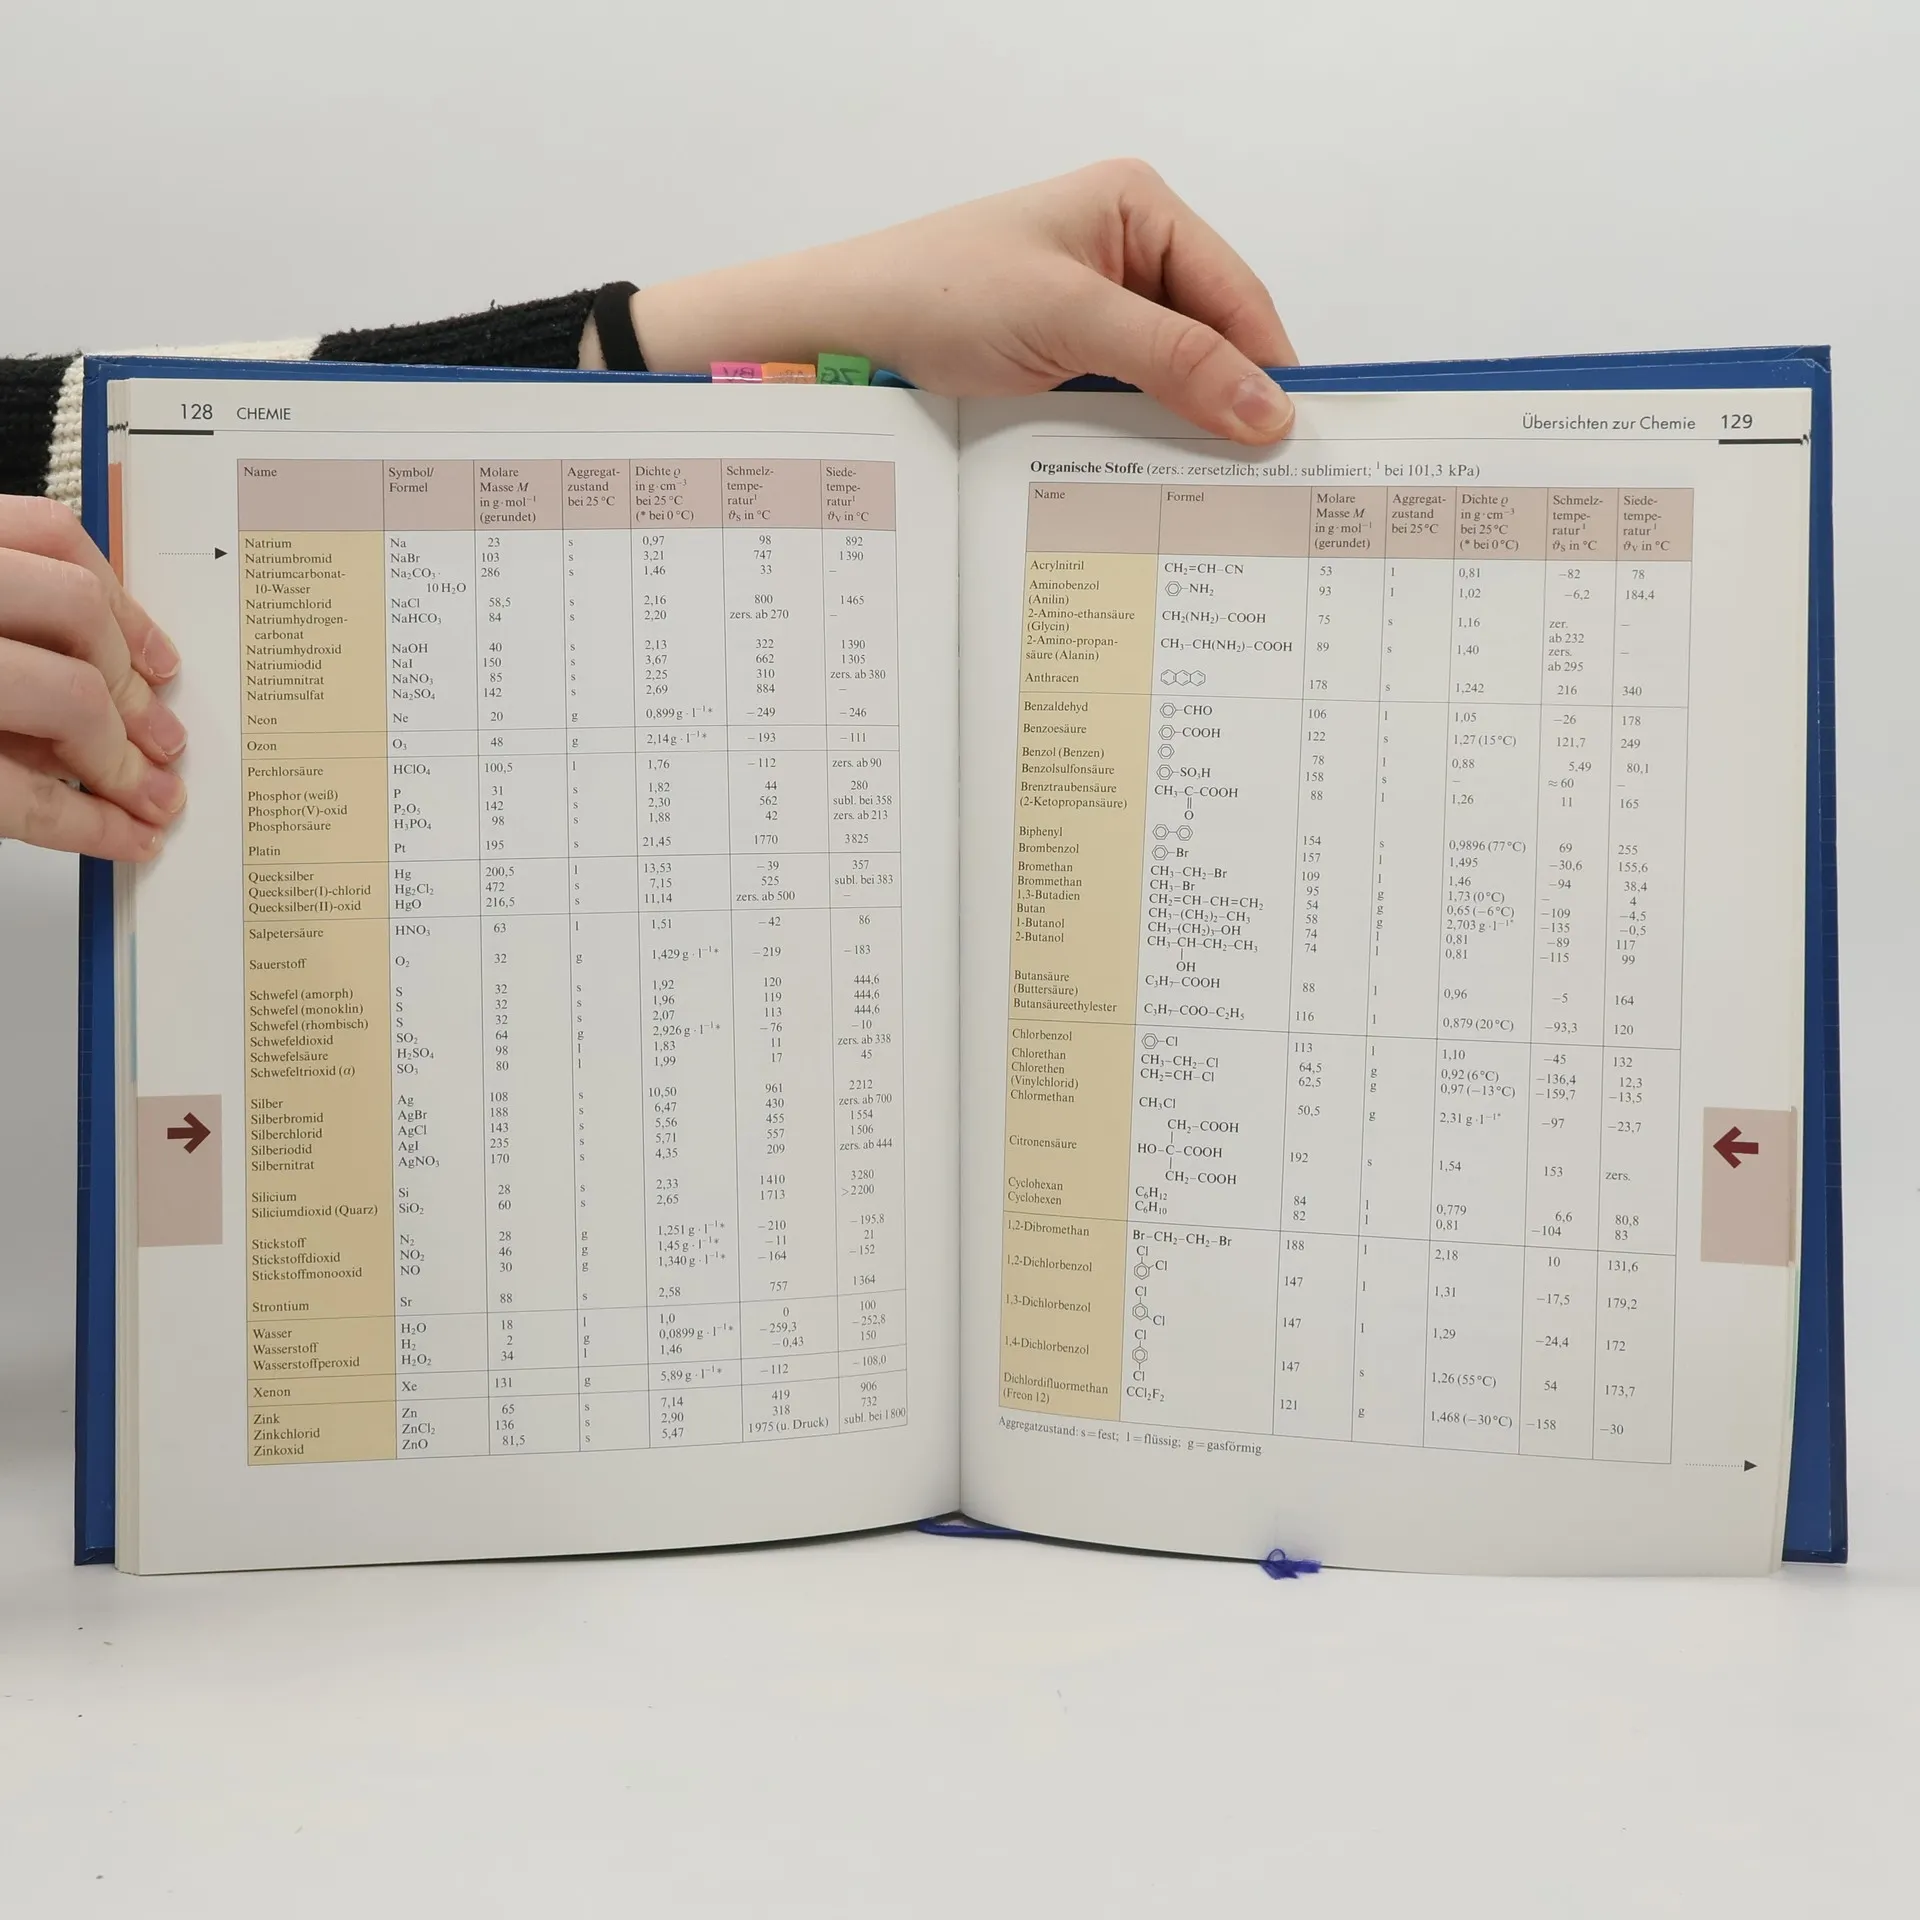 128 CHEMIE
Name Symbol/ Formel Molare Masse M in g·mol⁻¹ (gerundet) Aggregat- zustand bei 25 °C Dichte ϱ in g·cm⁻³ bei 25 °C (* bei 0 °C) Schmelz- tempe- ratur¹ ϑS in °C Siede- tempe- ratur¹ ϑV in °C
Natrium Na 23 s 0,97 98 892
Natriumbromid NaBr 103 s 3,21 747 1390
Natriumcarbonat- Na₂CO₃· 286 s 1,46 33 –
10-Wasser 10 H₂O
Natriumchlorid NaCl 58,5 s 2,16 800 1465
Natriumhydrogen- NaHCO₃ 84 s 2,20 zers. ab 270 –
carbonat
Natriumhydroxid NaOH 40 s 2,13 322 1390
Natriumiodid NaI 150 s 3,67 662 1305
Natriumnitrat NaNO₃ 85 s 2,25 310 zers. ab 380
Natriumsulfat Na₂SO₄ 142 s 2,69 884 –
Neon Ne 20 g 0,899 g·l⁻¹* −249 −246
Ozon O₃ 48 g 2,14 g·l⁻¹* −193 −111
Perchlorsäure HClO₄ 100,5 l 1,76 −112 zers. ab 90
Phosphor (weiß) P 31 s 1,82 44 280
Phosphor(V)-oxid P₂O₅ 142 s 2,30 562 subl. bei 358
Phosphorsäure H₃PO₄ 98 s 1,88 42 zers. ab 213
Platin Pt 195 s 21,45 1770 3825
Quecksilber Hg 200,5 l 13,53 −39 357
Quecksilber(I)-chlorid Hg₂Cl₂ 472 s 7,15 525 subl. bei 383
Quecksilber(II)-oxid HgO 216,5 s 11,14 zers. ab 500 –
Salpetersäure HNO₃ 63 l 1,51 −42 86
Sauerstoff O₂ 32 g 1,429 g·l⁻¹* −219 −183
Schwefel (amorph) S 32 s 1,92 120 444,6
Schwefel (monoklin) S 32 s 1,96 119 444,6
Schwefel (rhombisch) S 32 s 2,07 113 444,6
Schwefeldioxid SO₂ 64 g 2,926 g·l⁻¹* −76 −10
Schwefelsäure H₂SO₄ 98 l 1,83 11 zers. ab 338
Schwefeltrioxid (α) SO₃ 80 l 1,99 17 45
Silber Ag 108 s 10,50 961 2212
Silberbromid AgBr 188 s 6,47 430 zers. ab 700
Silberchlorid AgCl 143 s 5,56 455 1554
Silberiodid AgI 235 s 5,71 557 1506
Silbernitrat AgNO₃ 170 s 4,35 209 zers. ab 444
Silicium Si 28 s 2,33 1410 3280
Siliciumdioxid (Quarz) SiO₂ 60 s 2,65 1713 >2200
Stickstoff N₂ 28 g 1,251 g·l⁻¹* −210 −195,8
Stickstoffdioxid NO₂ 46 g 1,45 g·l⁻¹* −11 21
Stickstoffmonooxid NO 30 g 1,340 g·l⁻¹* −164 −152
Strontium Sr 88 s 2,58 757 1364
Wasser H₂O 18 l 1,0 0 100
Wasserstoff H₂ 2 g 0,0899 g·l⁻¹* −259,3 −252,8
Wasserstoffperoxid H₂O₂ 34 l 1,46 −0,43 150
Xenon Xe 131 g 5,89 g·l⁻¹* −112 −108,0
Zink Zn 65 s 7,14 419 906
Zinkchlorid ZnCl₂ 136 s 2,90 318 732
Zinkoxid ZnO 81,5 s 5,47 1975 (u. Druck) subl. bei 1800
Übersichten zur Chemie 129
Organische Stoffe (zers.: zersetzlich; subl.: sublimiert; ¹ bei 101,3 kPa)
Name Formel Molare Masse M in g·mol⁻¹ (gerundet) Aggregat- zustand bei 25 °C Dichte ϱ in g·cm⁻³ bei 25 °C (* bei 0 °C) Schmelz- tempe- ratur¹ ϑS in °C Siede- tempe- ratur¹ ϑV in °C
Acrylnitril CH₂=CH–CN 53 l 0,81 −82 78
Aminobenzol –NH₂ 93 l 1,02 −6,2 184,4
(Anilin)
2-Amino-ethansäure CH₂(NH₂)–COOH 75 s 1,16 zer. –
(Glycin) ab 232
2-Amino-propan- CH₃–CH(NH₂)–COOH 89 s 1,40 zers. –
säure (Alanin) ab 295
Anthracen 178 s 1,242 216 340
Benzaldehyd –CHO 106 l 1,05 −26 178
Benzoesäure –COOH 122 s 1,27 (15 °C) 121,7 249
Benzol (Benzen) 78 l 0,88 5,49 80,1
Benzolsulfonsäure –SO₃H 158 s – ≈60 –
Brenztraubensäure CH₃–C–COOH 88 l 1,26 11 165
(2-Ketopropansäure) O
Biphenyl 154 s 0,9896 (77 °C) 69 255
Brombenzol –Br 157 l 1,495 −30,6 155,6
Bromethan CH₃–CH₂–Br 109 l 1,46 −94 38,4
Brommethan CH₃–Br 95 g 1,73 (0 °C) – 4
1,3-Butadien CH₂=CH–CH=CH₂ 54 g 0,65 (−6 °C) −109 −4,5
Butan CH₃–(CH₂)₂–CH₃ 58 g 2,703 g·l⁻¹* −135 −0,5
1-Butanol CH₃–(CH₂)₃–OH 74 l 0,81 −89 117
2-Butanol CH₃–CH–CH₂–CH₃ 74 l 0,81 −115 99
OH
Butansäure C₃H₇–COOH 88 l 0,96 −5 164
(Buttersäure)
Butansäureethylester C₃H₇–COO–C₂H₅ 116 l 0,879 (20 °C) −93,3 120
Chlorbenzol –Cl 113 l 1,10 −45 132
Chlorethan CH₃–CH₂–Cl 64,5 g 0,92 (6 °C) −136,4 12,3
Chlorethen CH₂=CH–Cl 62,5 g 0,97 (−13 °C) −159,7 −13,5
(Vinylchlorid)
Chlormethan CH₃Cl 50,5 g 2,31 g·l⁻¹* −97 −23,7
CH₂–COOH
Citronensäure HO–C–COOH 192 s 1,54 153 zers.
CH₂–COOH
Cyclohexan C₆H₁₂ 84 l 0,779 6,6 80,8
Cyclohexen C₆H₁₀ 82 l 0,81 −104 83
1,2-Dibromethan Br–CH₂–CH₂–Br 188 l 2,18 10 131,6
Cl
1,2-Dichlorbenzol Cl 147 l 1,31 −17,5 179,2
Cl
1,3-Dichlorbenzol Cl 147 l 1,29 −24,4 172
Cl
1,4-Dichlorbenzol 147 s 1,26 (55 °C) 54 173,7
Cl
Dichlordifluormethan CCl₂F₂ 121 g 1,468 (−30 °C) −158 −30
(Freon 12)
Aggregatzustand: s = fest; l = flüssig; g = gasförmig